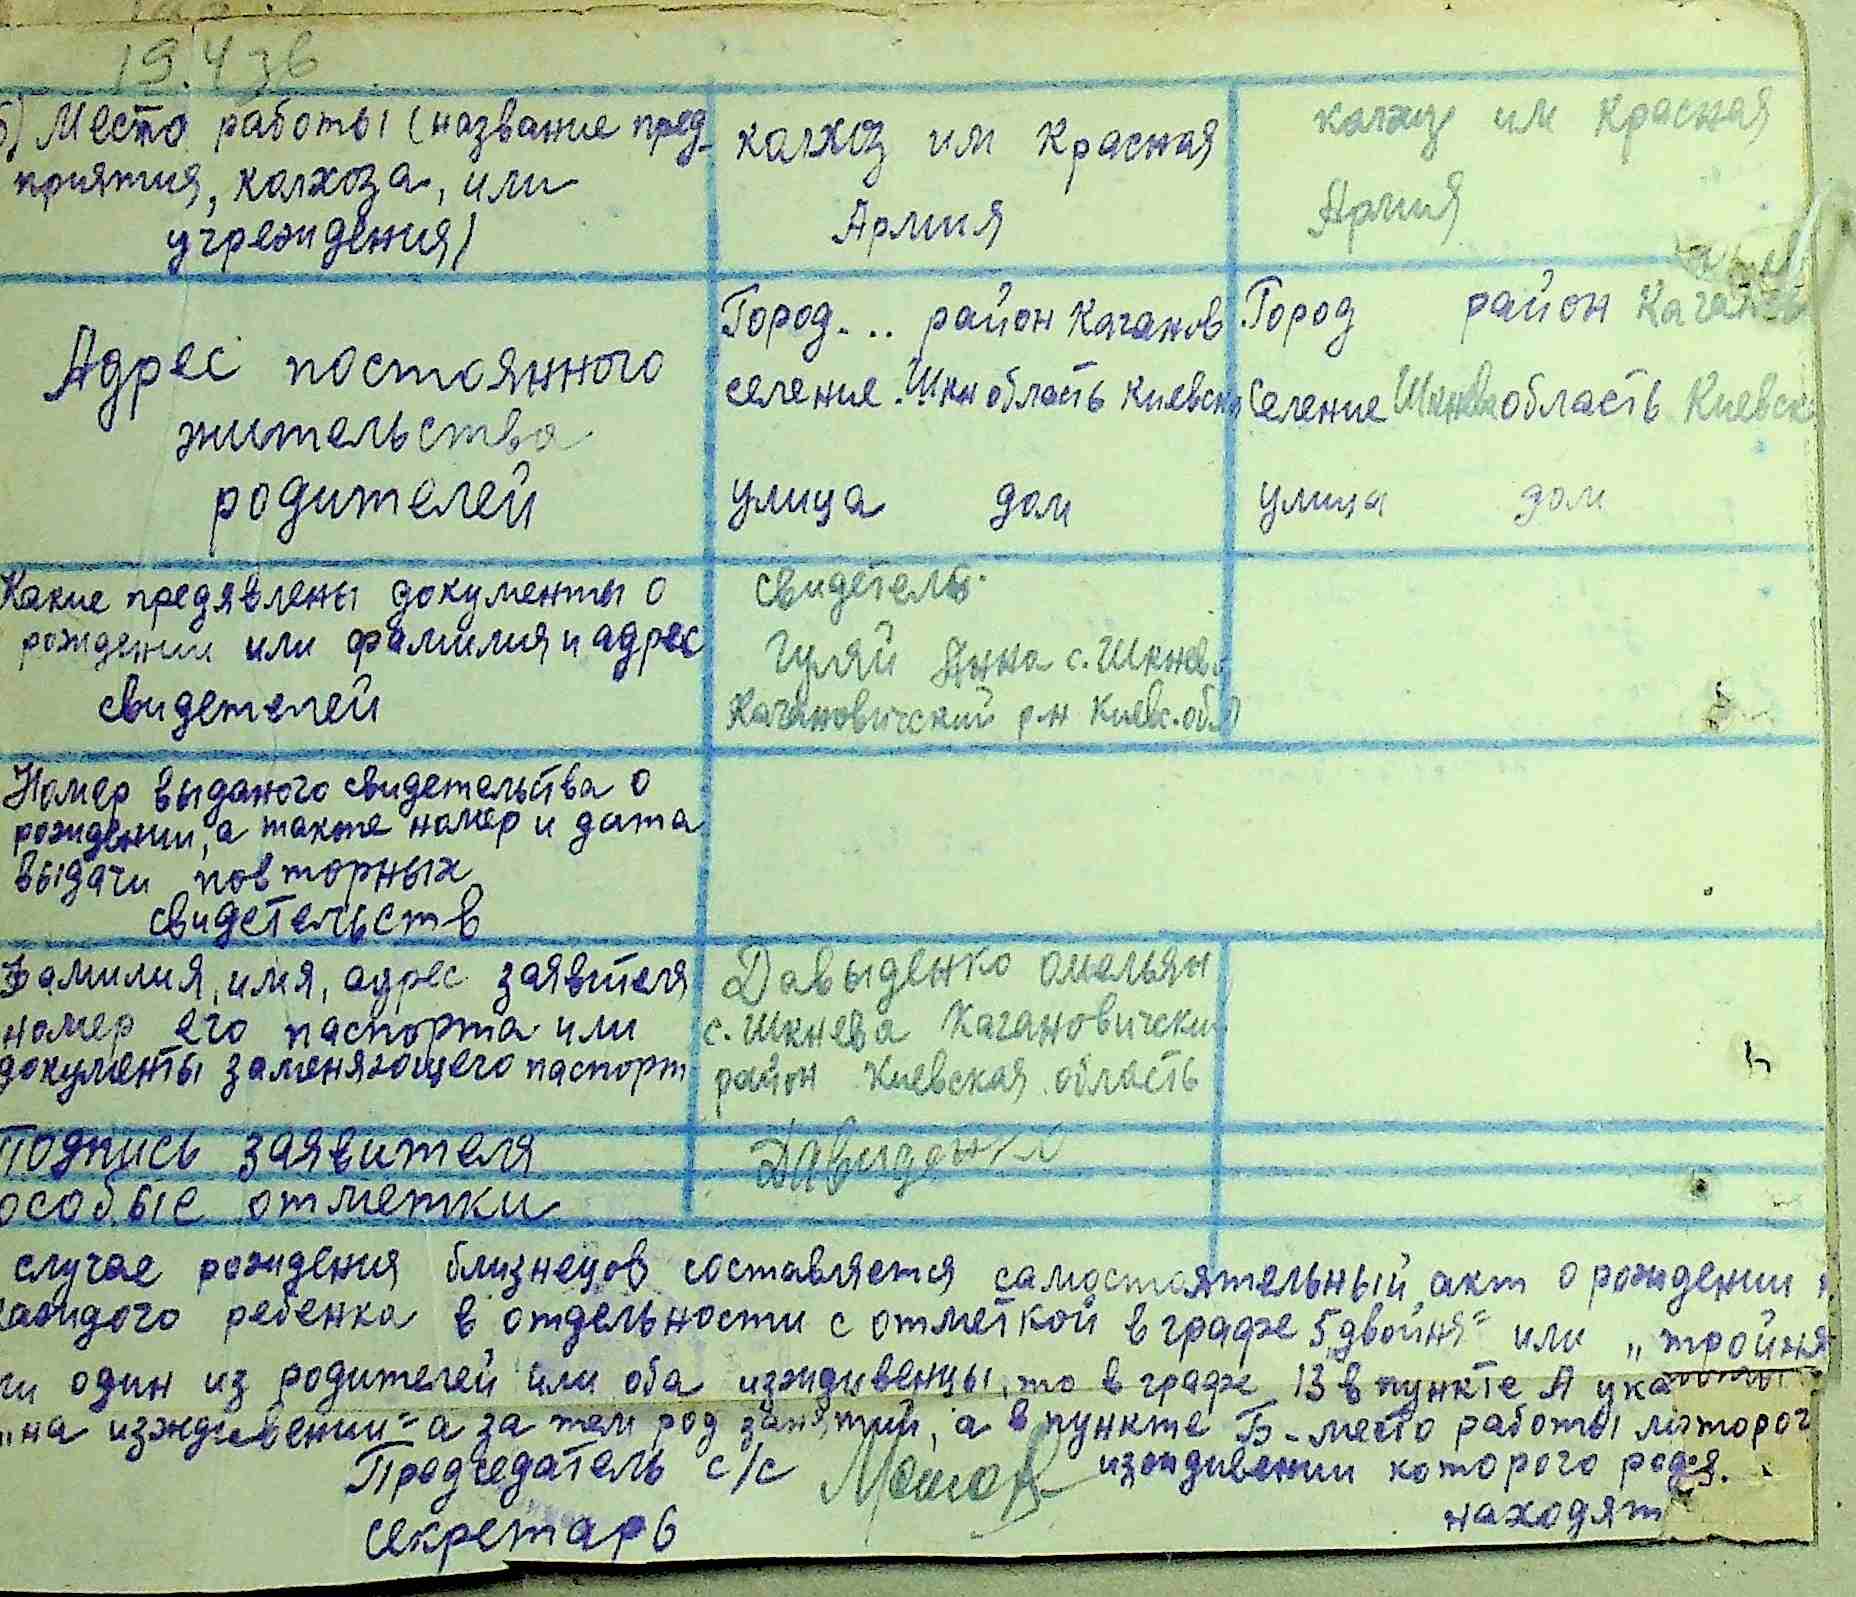 19.436
б) Место работы (название пред-
приятия, колхоза, или
учреждения)
колхоз им Красная
Армия
колхоз им Красная
Армия
Адрес постоянного
жительства
родителей
Город- .. район Каганов
селение .Шкн область Киевск
улица дом
Город район Каганов
селение Шкнева область Киевск
улица дом
Какие предявлены документы о
рождении или фамилия и адрес
свидетелей
свидетель.
Гуляй Анна с. Шкнева
Кагановичский р-н Киевс. обл
Номер выданого свидетельства о
рождении, а также номер и дата
выдачи повторных
свидетельств
Фамилия, имя, адрес заявителя
номер его паспорта или
документы заменяющего паспорт
Давыденко Омельян
с. Шкнева Кагановически
район Киевская область
Подпись заявителя
Давиденко
особые отметки
случае рождения близнецов составляется самостоятельный акт о рождении
каждого ребенка в отдельности с отметкой в графе 5 „двойня" или „тройня
ли один из родителей или оба иждивенцы, то в графе 13 в пункте А ука
„на иждивении" а за тем род занятий, а в пункте Б - место работы
иждивении которого род-я.
находят
Председатель с/с
секретарь